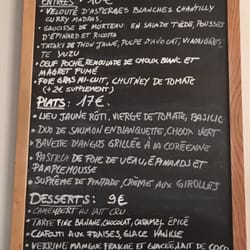 ENTRÉES : 10€
• VELOUTÉ D'ASPERGES BLANCHES CHANTILLY
CURRY MADRAS
• SAUCISSE DE MORTEAU EN SALADE TIÈDE, POUSSES
D'ÉPINARD ET RICOTTA
• TATAKI DE THON JAUNE, PULPE D'AVOCAT, VINAIGRE
TE YUZU
• OEUF POCHÉ, REMOULADE DE CHOUX BLANC ET
MAGRET FUMÉ
• FOIE GRAS MI-CUIT, CHUTNEY DE TOMATE
(+2€ SUPPLÉMENT)
PLATS: 17€.
• LIEU JAUNE RÔTI, VIERGE DE TOMATE, BASILIC
• DUO DE SAUMON EN BLANQUETTE, CHOUX VERT
• BAVETTE D'ANGUS GRILLÉE À LA CORÉENNE
• PASTILLA DE FOIE DE VEAU, ÉPINARDS ET
PAMPLEMOUSSE
• SUPRÊME DE PINTADE, CRÈME AUX GIROLLES
DESSERTS: 9€
• CAMEMBERT AU LAIT CRU
• TARTE FINE BANANE, CHOCOLAT, CARAMEL ÉPICÉ
• CLAFOUTI AUX FRAISES, GLACE
• VERRINE MANGUE FRAICHE ET GLACÉE, LAIT DE COCO